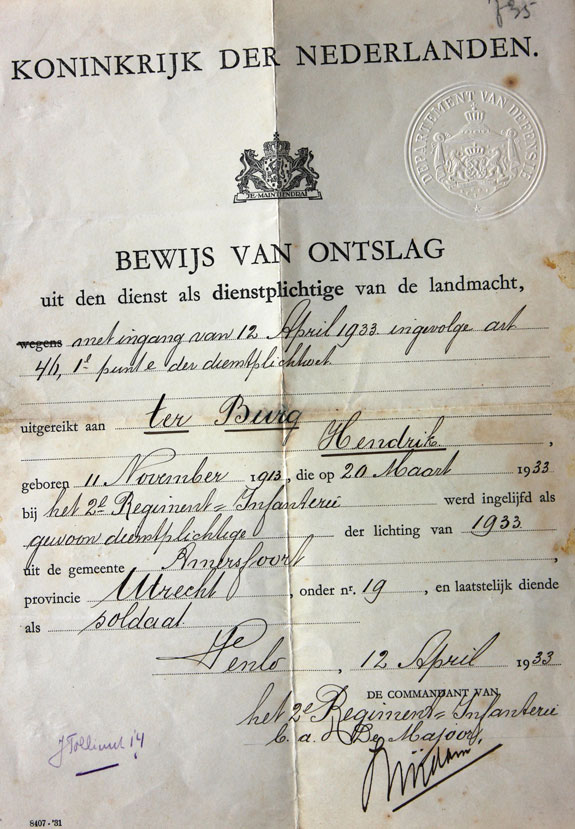 735
KONINKRIJK DER NEDERLANDEN.
DEPARTEMENT VAN DEFENSIE
JE·MAINTIENDRAI
BEWIJS VAN ONTSLAG
uit den dienst als dienstplichtige van de landmacht,
wegens met ingang van 12 April 1933 ingevolge art
41, 1e punt e der dienstplichtwet
uitgereikt aan ter Burg
Hendrik,
geboren 11 November 1913, die op 20 Maart 1933
bij het 2e Regiment Infanterie werd ingelijfd als
gewoon dienstplichtige der lichting van 1933
uit de gemeente Amersfoort,
provincie Utrecht, onder nr. 19, en laatstelijk diende
als soldaat
Venlo, 12 April 1933
DE COMMANDANT VAN
het 2e Regiment Infanterie
b. a. De Majoor,
14
8407 - '31